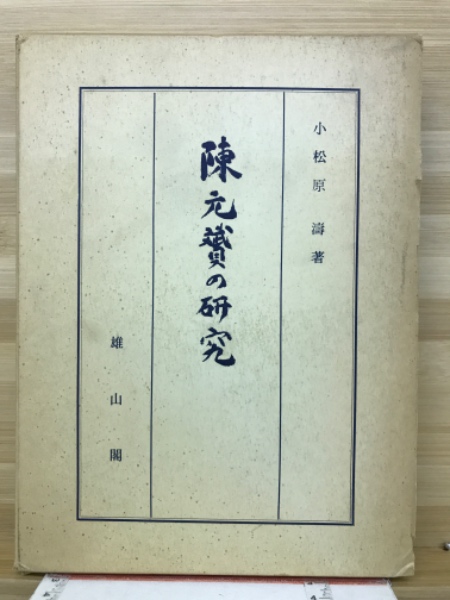 小松原 濤著
陳元贇の研究
雄山閣